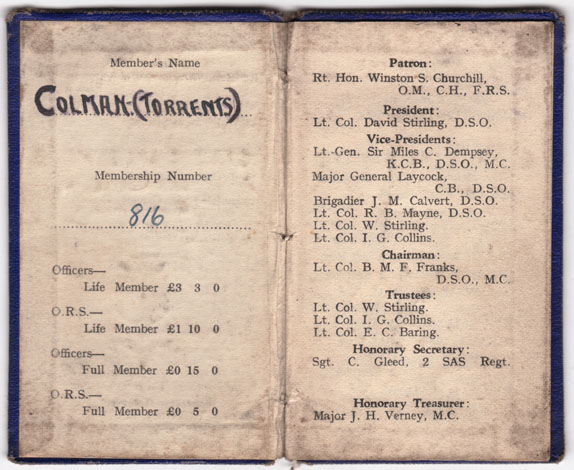 Member's Name
COLMAN.(TORRENTS)
Membership Number
816
Officers—
Life Member £3 3 0
O.R.S.—
Life Member £1 10 0
Officers—
Full Member £0 15 0
O.R.S.—
Full Member £0 5 0
Patron:
Rt. Hon. Winston S. Churchill,
O.M., C.H., F.R.S.
President:
Lt. Col. David Stirling, D.S.O.
Vice-Presidents:
Lt.-Gen. Sir Miles C. Dempsey,
K.C.B., D.S.O., M.C.
Major General Laycock,
C.B., D.S.O.
Brigadier J. M. Calvert, D.S.O.
Lt. Col. R. B. Mayne, D.S.O.
Lt. Col. W. Stirling.
Lt. Col. I. G. Collins.
Chairman:
Lt. Col. B. M. F. Franks,
D.S.O., M.C.
Trustees:
Lt. Col. W. Stirling.
Lt. Col. I. G. Collins.
Lt. Col. E. C. Baring.
Honorary Secretary:
Sgt. C. Gleed, 2 SAS Regt.
Honorary Treasurer:
Major J. H. Verney, M.C.